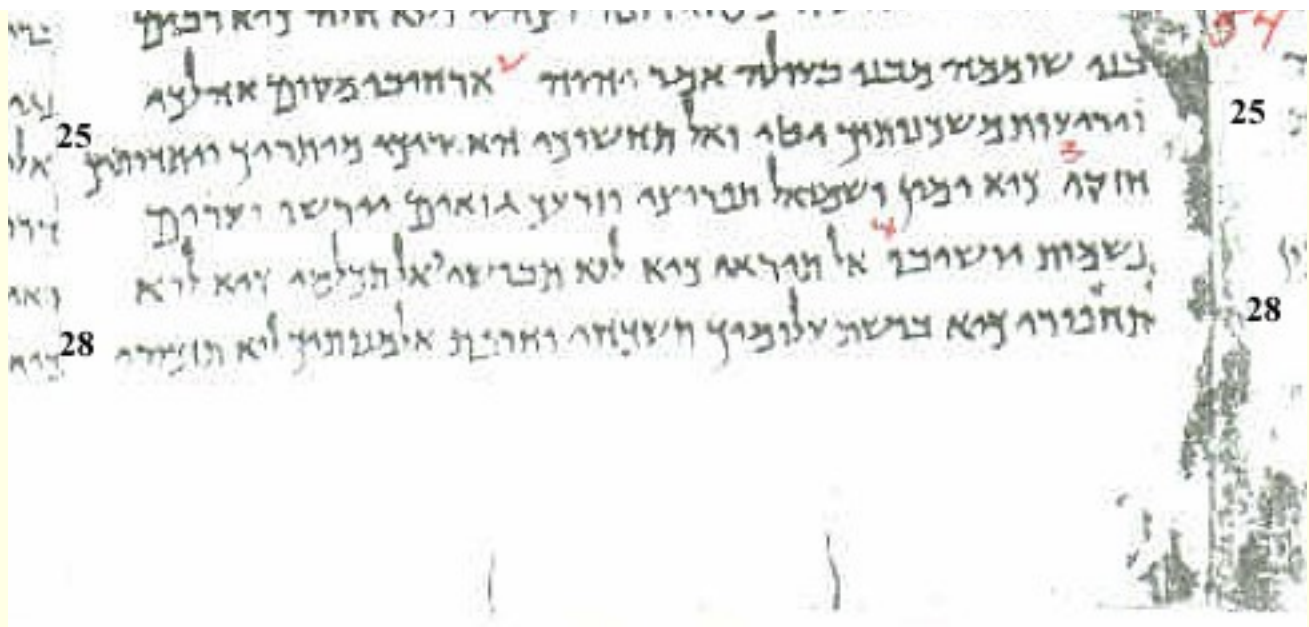 כיא רבים
בני שוממה מבני בעולה אמר יהוה 2 ארחיבי מקום אהלך
25 ויריעות משכנותיך יטי ואל תחשוכי האריכי מיתריך ויתדותיך 25
חזקי 3 כיא ימין ושמאל תפרוצי וזרעך גואים יירשו וערים
נשמות יושיבו 4 אל תיראי כיא לוא תבושי ואל תכלמי כיא לוא
28 תחפירי כיא בושת עלומיך תשכחי וחרפת אלמנותיך לוא תזכורי 28